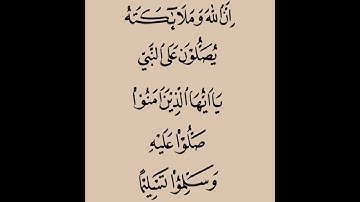 اِنَّ اللهَ وَمَلَآئِكَتَهُ
يُصَلُّوْنَ عَلَى النَّبِيِّ
يَا اَيُّهَا الَّذِيْنَ اٰمَنُوْا
صَلُّوْا عَلَيْهِ
وَسَلِّمُوْا تَسْلِيْمًا